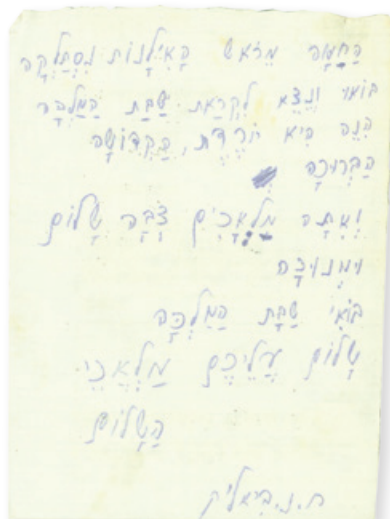 הַחַמָּה מֵרֹאשׁ הָאִילָנוֹת נִסְתַּלְּקָה
בּוֹאוּ וְנֵצֵא לִקְרַאת שַׁבָּת הַמַּלְכָּה
הִנֵּה הִיא יוֹרֶדֶת הַקְּדוֹשָׁה
הַבְּרוּכָה
וְאִתָּה מַלְאָכִים צְבָה שָׁלוֹם
וּמְנוּחָה
בּוֹאִי שַׁבָּת הַמַּלְכָּה
שָׁלוֹם עֲלֵיכֶם מַלְאֲכֵי
הַשָׁלוֹם
ח.נ. בִּיאליק